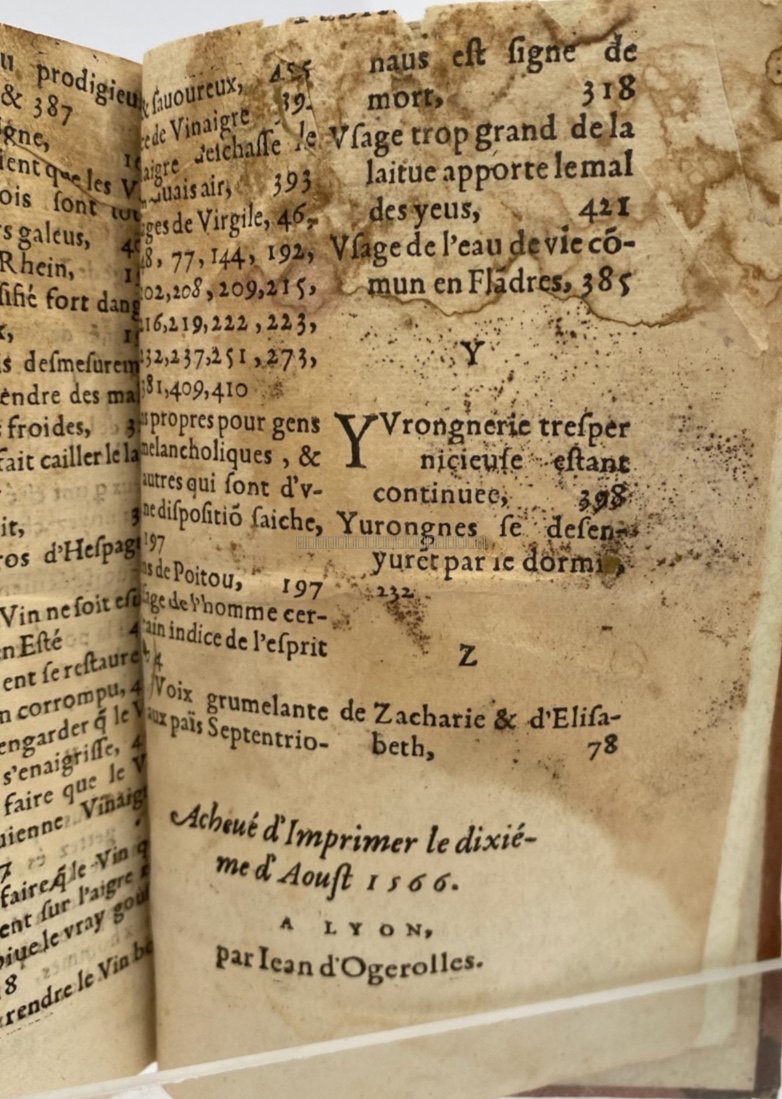 u prodigieu
& 387
igne,
ient que les V
ois sont tou
rs galeus, 4
Rhein, 1
sifié fort dang
x, 1
s desmesurem
endre des ma
s froides, 3
fait cailler le la
it, 3
ros d'Hespag
Vin ne soit esu
n Esté 4
ent se restaure
n corrompu, 4
engarder q̃ le V
s'enaigrisse, 4
faire que le V
uienne Vinaig
7
faire q̃ le Vin q
ent sur l'aigre
oiue le vray gou
8
rendre le Vin bo
& sauoureux, 455
ce de Vinaigre 39
aigre deschasse le
uais air, 393
ges de Virgile, 46,
8, 77, 144, 192,
202,208,209,215,
216,219,222,223,
232,237,251,273,
381,409,410
s propres pour gens
melancholiques, &
autres qui sont d'v-
ne dispositiō saiche,
197
s de Poitou, 197
age de l'homme cer-
tain indice de l'esprit
4
Voix grumelante de
aux païs Septentrio-
naus est signe de
mort, 318
Vsage trop grand de la
laitue apporte le mal
des yeus, 421
Vsage de l'eau de vie cō-
mun en Flādres, 385
Y
YVrongnerie tresper
nicieuse estant
continuee, 398
Yurongnes se desen-
yurēt par le dormi,
232
Z
Zacharie & d'Elisa-
beth, 78
Acheué d'Imprimer le dixié-
me d'Aoust 1566.
A LYON,
par Iean d'Ogerolles.